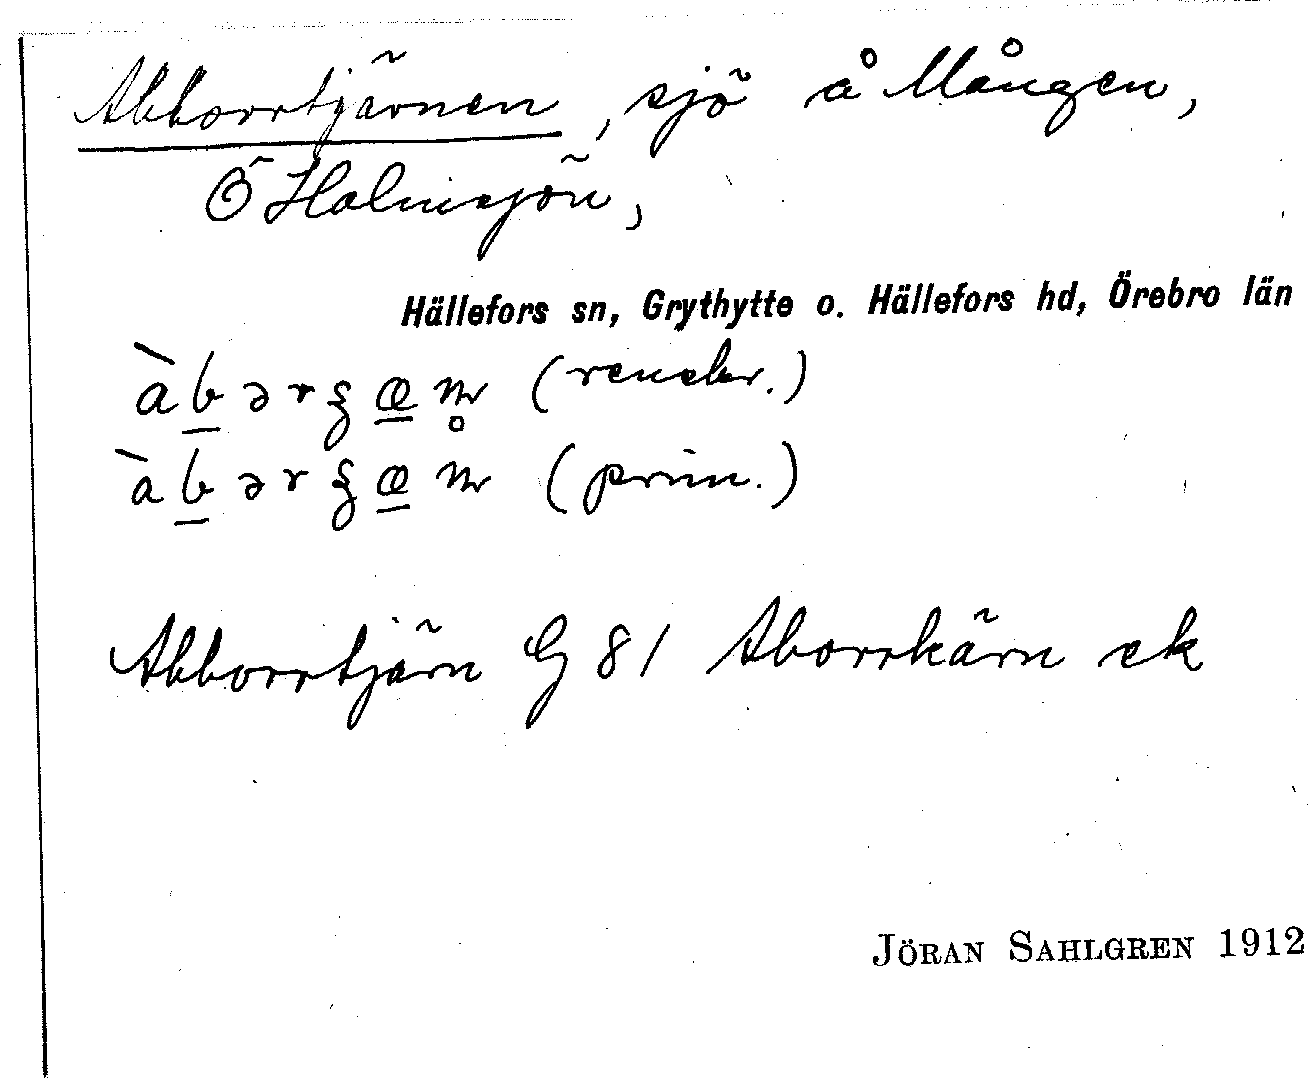 Abborrtjärnen, sjö å Mången,
Ö Halmsjön,
Hällefors sn, Grythytte o. Hällefors hd, Örebro län
àbərʂæn̥ (renskr.)
àbərʂæn (prim.)
Abborrtjärn G 81 Aborrkärn ek
JÖRAN SAHLGREN 1912